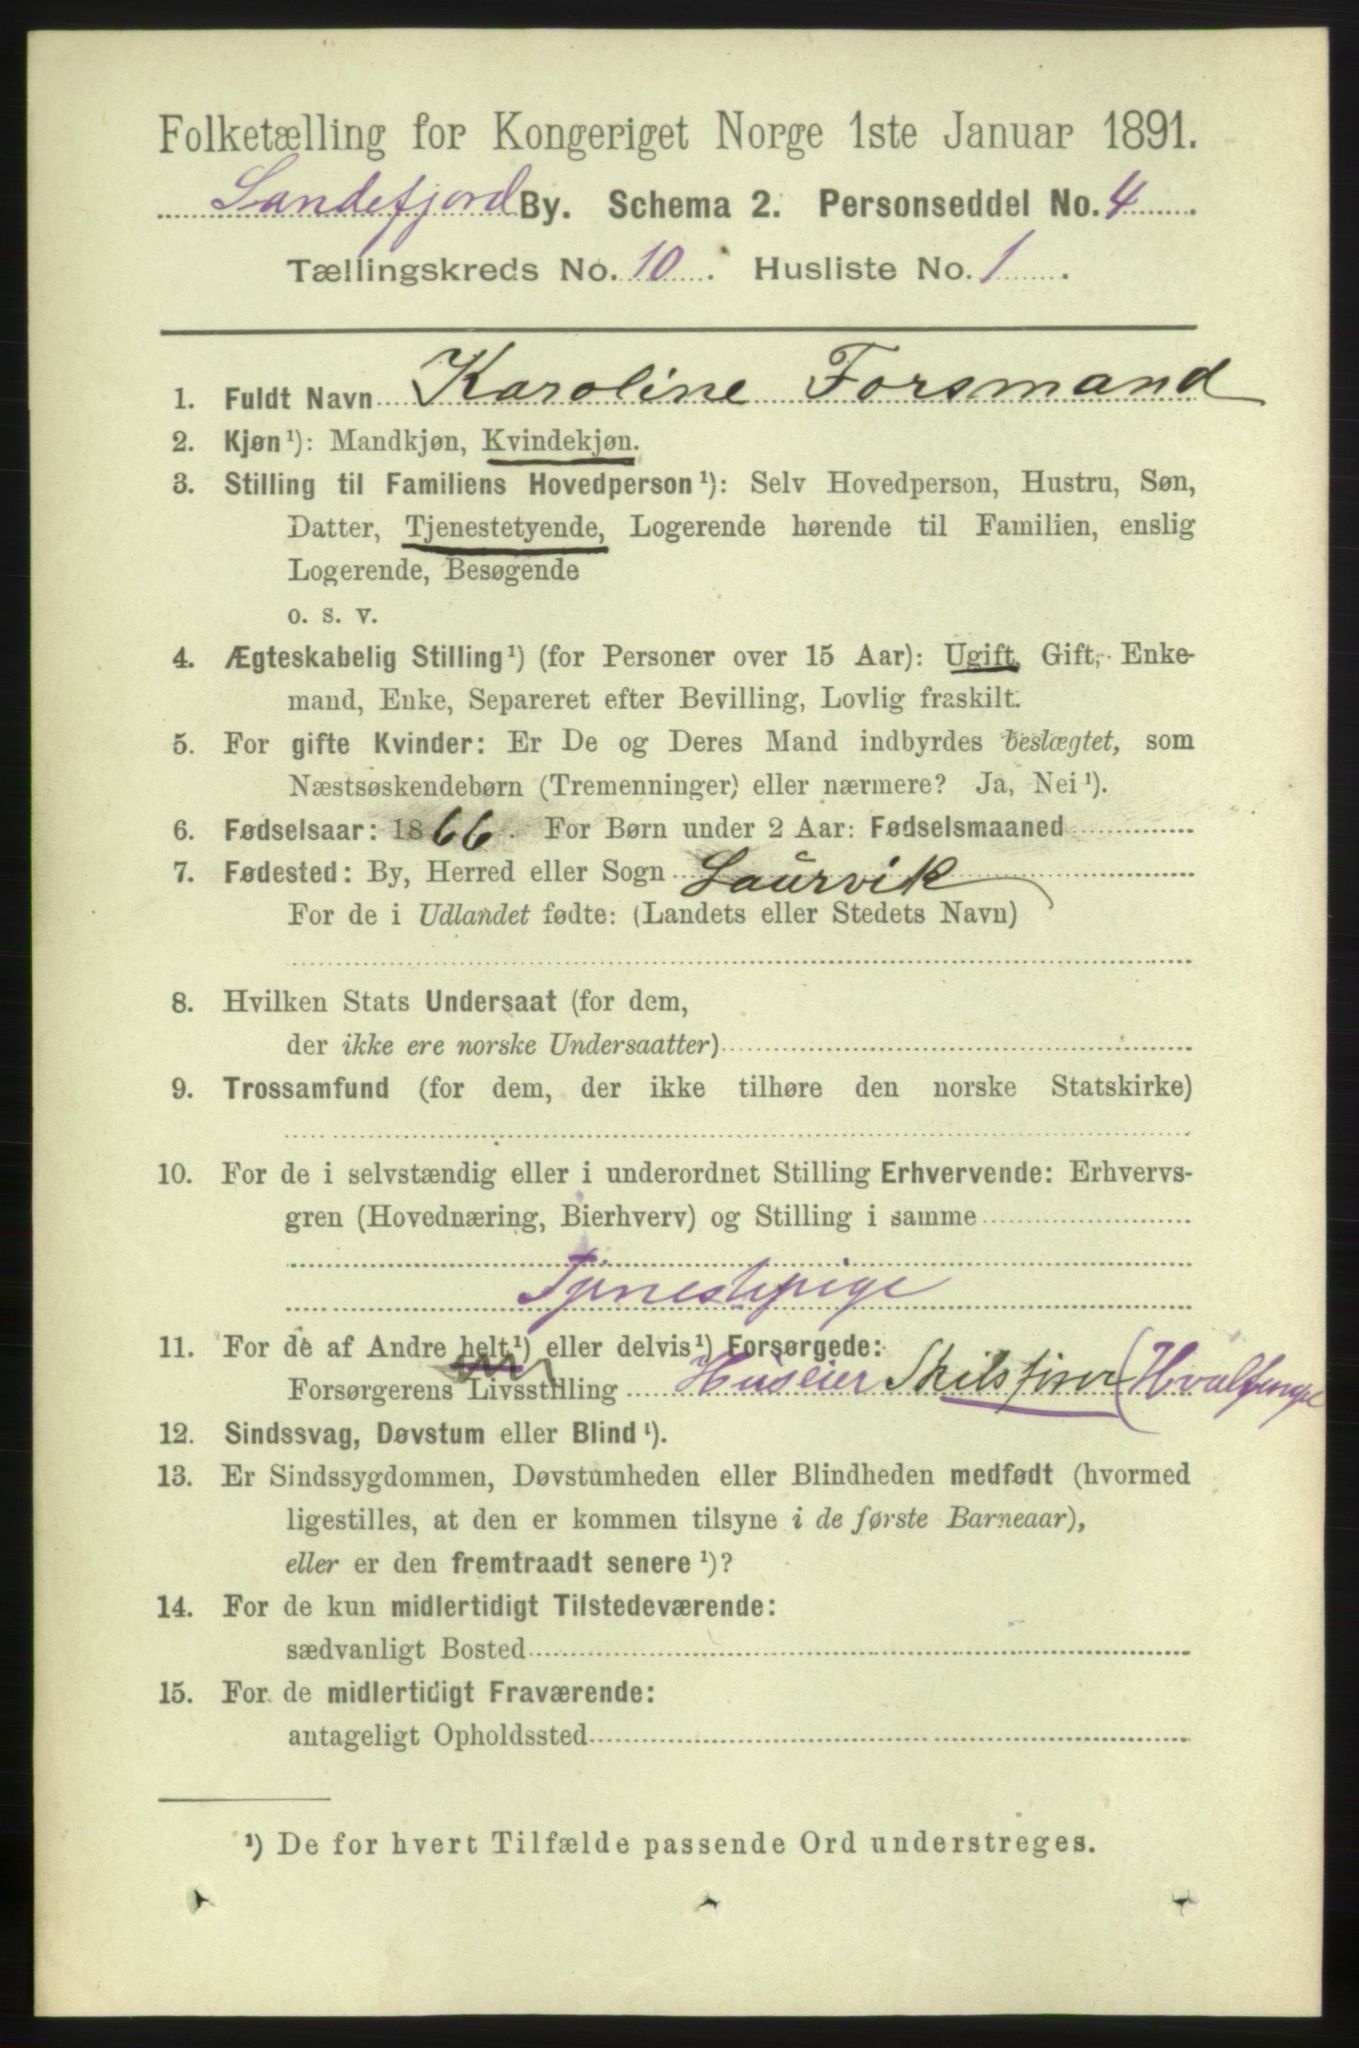 Folketælling for Kongeriget Norge 1ste Januar 1891.
Sandefjord By. Schema 2. Personseddel No. 4
Tællingskreds No. 10. Husliste No. 1.
1. Fuldt Navn Karoline Forsmand
2. Kjøn¹): Mandkjøn, Kvindekjøn.
3. Stilling til Familiens Hovedperson¹): Selv Hovedperson, Hustru, Søn,
Datter, Tjenestetyende, Logerende hørende til Familien, enslig
Logerende, Besøgende
o. s. v.
4. Ægteskabelig Stilling¹) (for Personer over 15 Aar): Ugift, Gift, Enke-
mand, Enke, Separeret efter Bevilling, Lovlig fraskilt.
5. For gifte Kvinder: Er De og Deres Mand indbyrdes beslægtet, som
Næstsøskendebørn (Tremenninger) eller nærmere? Ja, Nei¹).
6. Fødselsaar: 1866. For Børn under 2 Aar: Fødselsmaaned
7. Fødested: By, Herred eller Sogn Laurvik
For de i Udlandet fødte: (Landets eller Stedets Navn)
8. Hvilken Stats Undersaat (for dem,
der ikke ere norske Undersaatter)
9. Trossamfund (for dem, der ikke tilhøre den norske Statskirke)
10. For de i selvstændig eller i underordnet Stilling Erhvervende: Erhvervs-
gren (Hovednæring, Bierhverv) og Stilling i samme
Tjenestepige
11. For de af Andre helt¹) eller delvis¹) Forsørgede:
Forsørgerens Livsstilling Huseier (Hvalfangst
12. Sindssvag, Døvstum eller Blind¹).
13. Er Sindssygdommen, Døvstumheden eller Blindheden medfødt (hvormed
ligestilles, at den er kommen tilsyne i de første Barneaar),
eller er den fremtraadt senere¹)?
14. For de kun midlertidigt Tilstedeværende:
sædvanligt Bosted
15. For de midlertidigt Fraværende:
antageligt Opholdssted
¹) De for hvert Tilfælde passende Ord understreges.